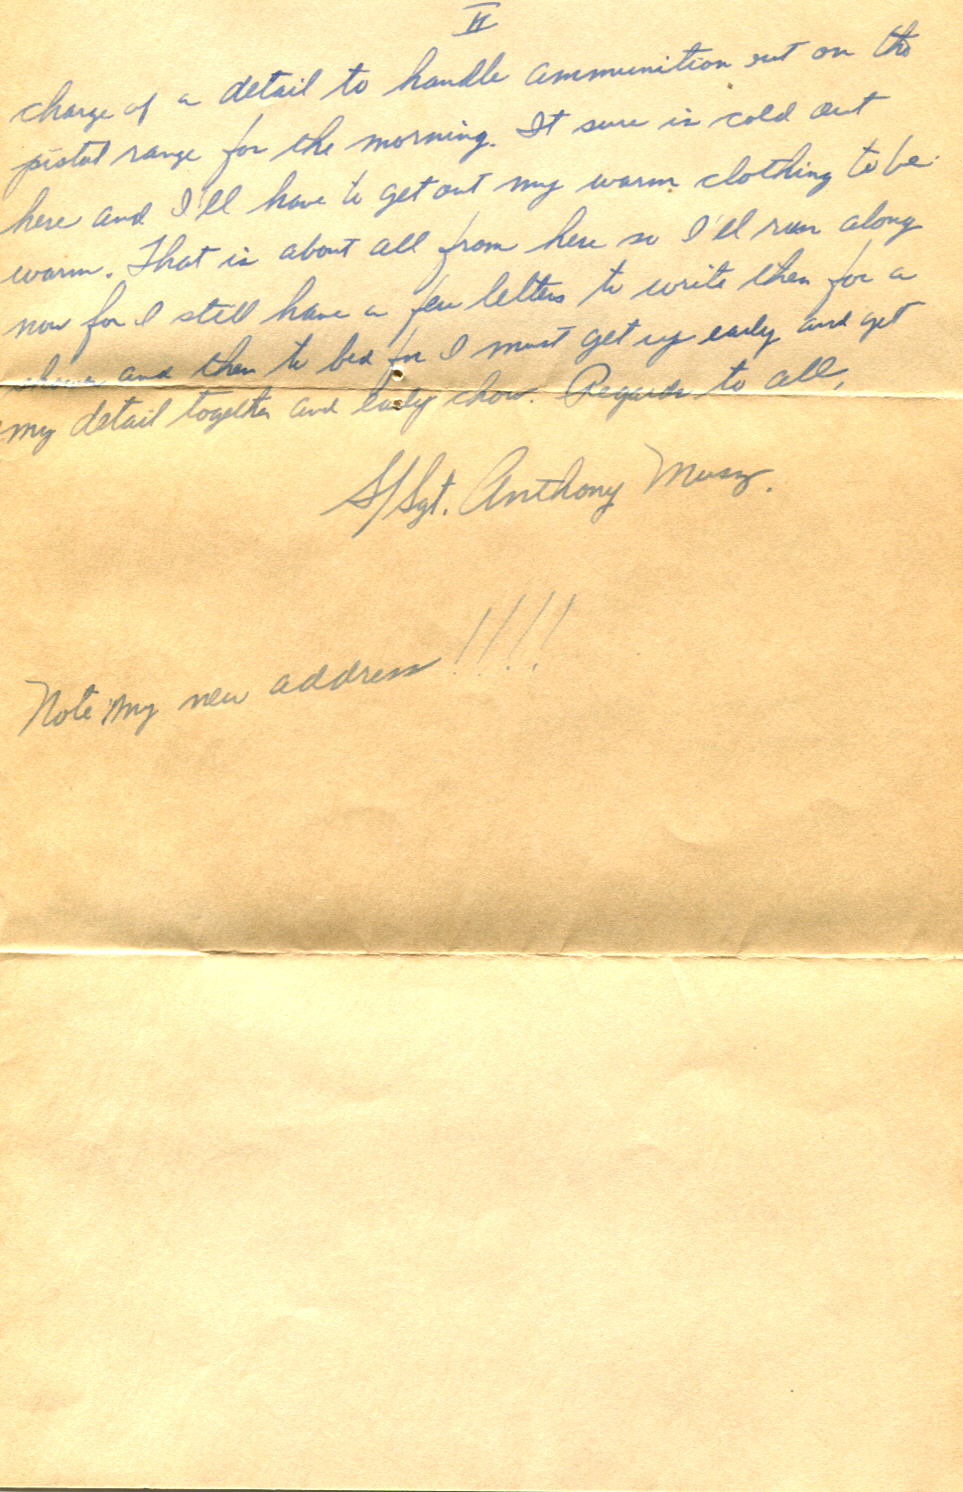 II
charge of a detail to handle ammunition out on the
pistol range for the morning. It sure is cold out
here and I'll have to get out my warm clothing to be
warm. That is about all from here so I'll run along
now for I still have a few letters to write then for a
shower and then to bed for I must get up early and get
my detail together and early chow. Regards to all,
S/Sgt. Anthony
Note my new address!!!!